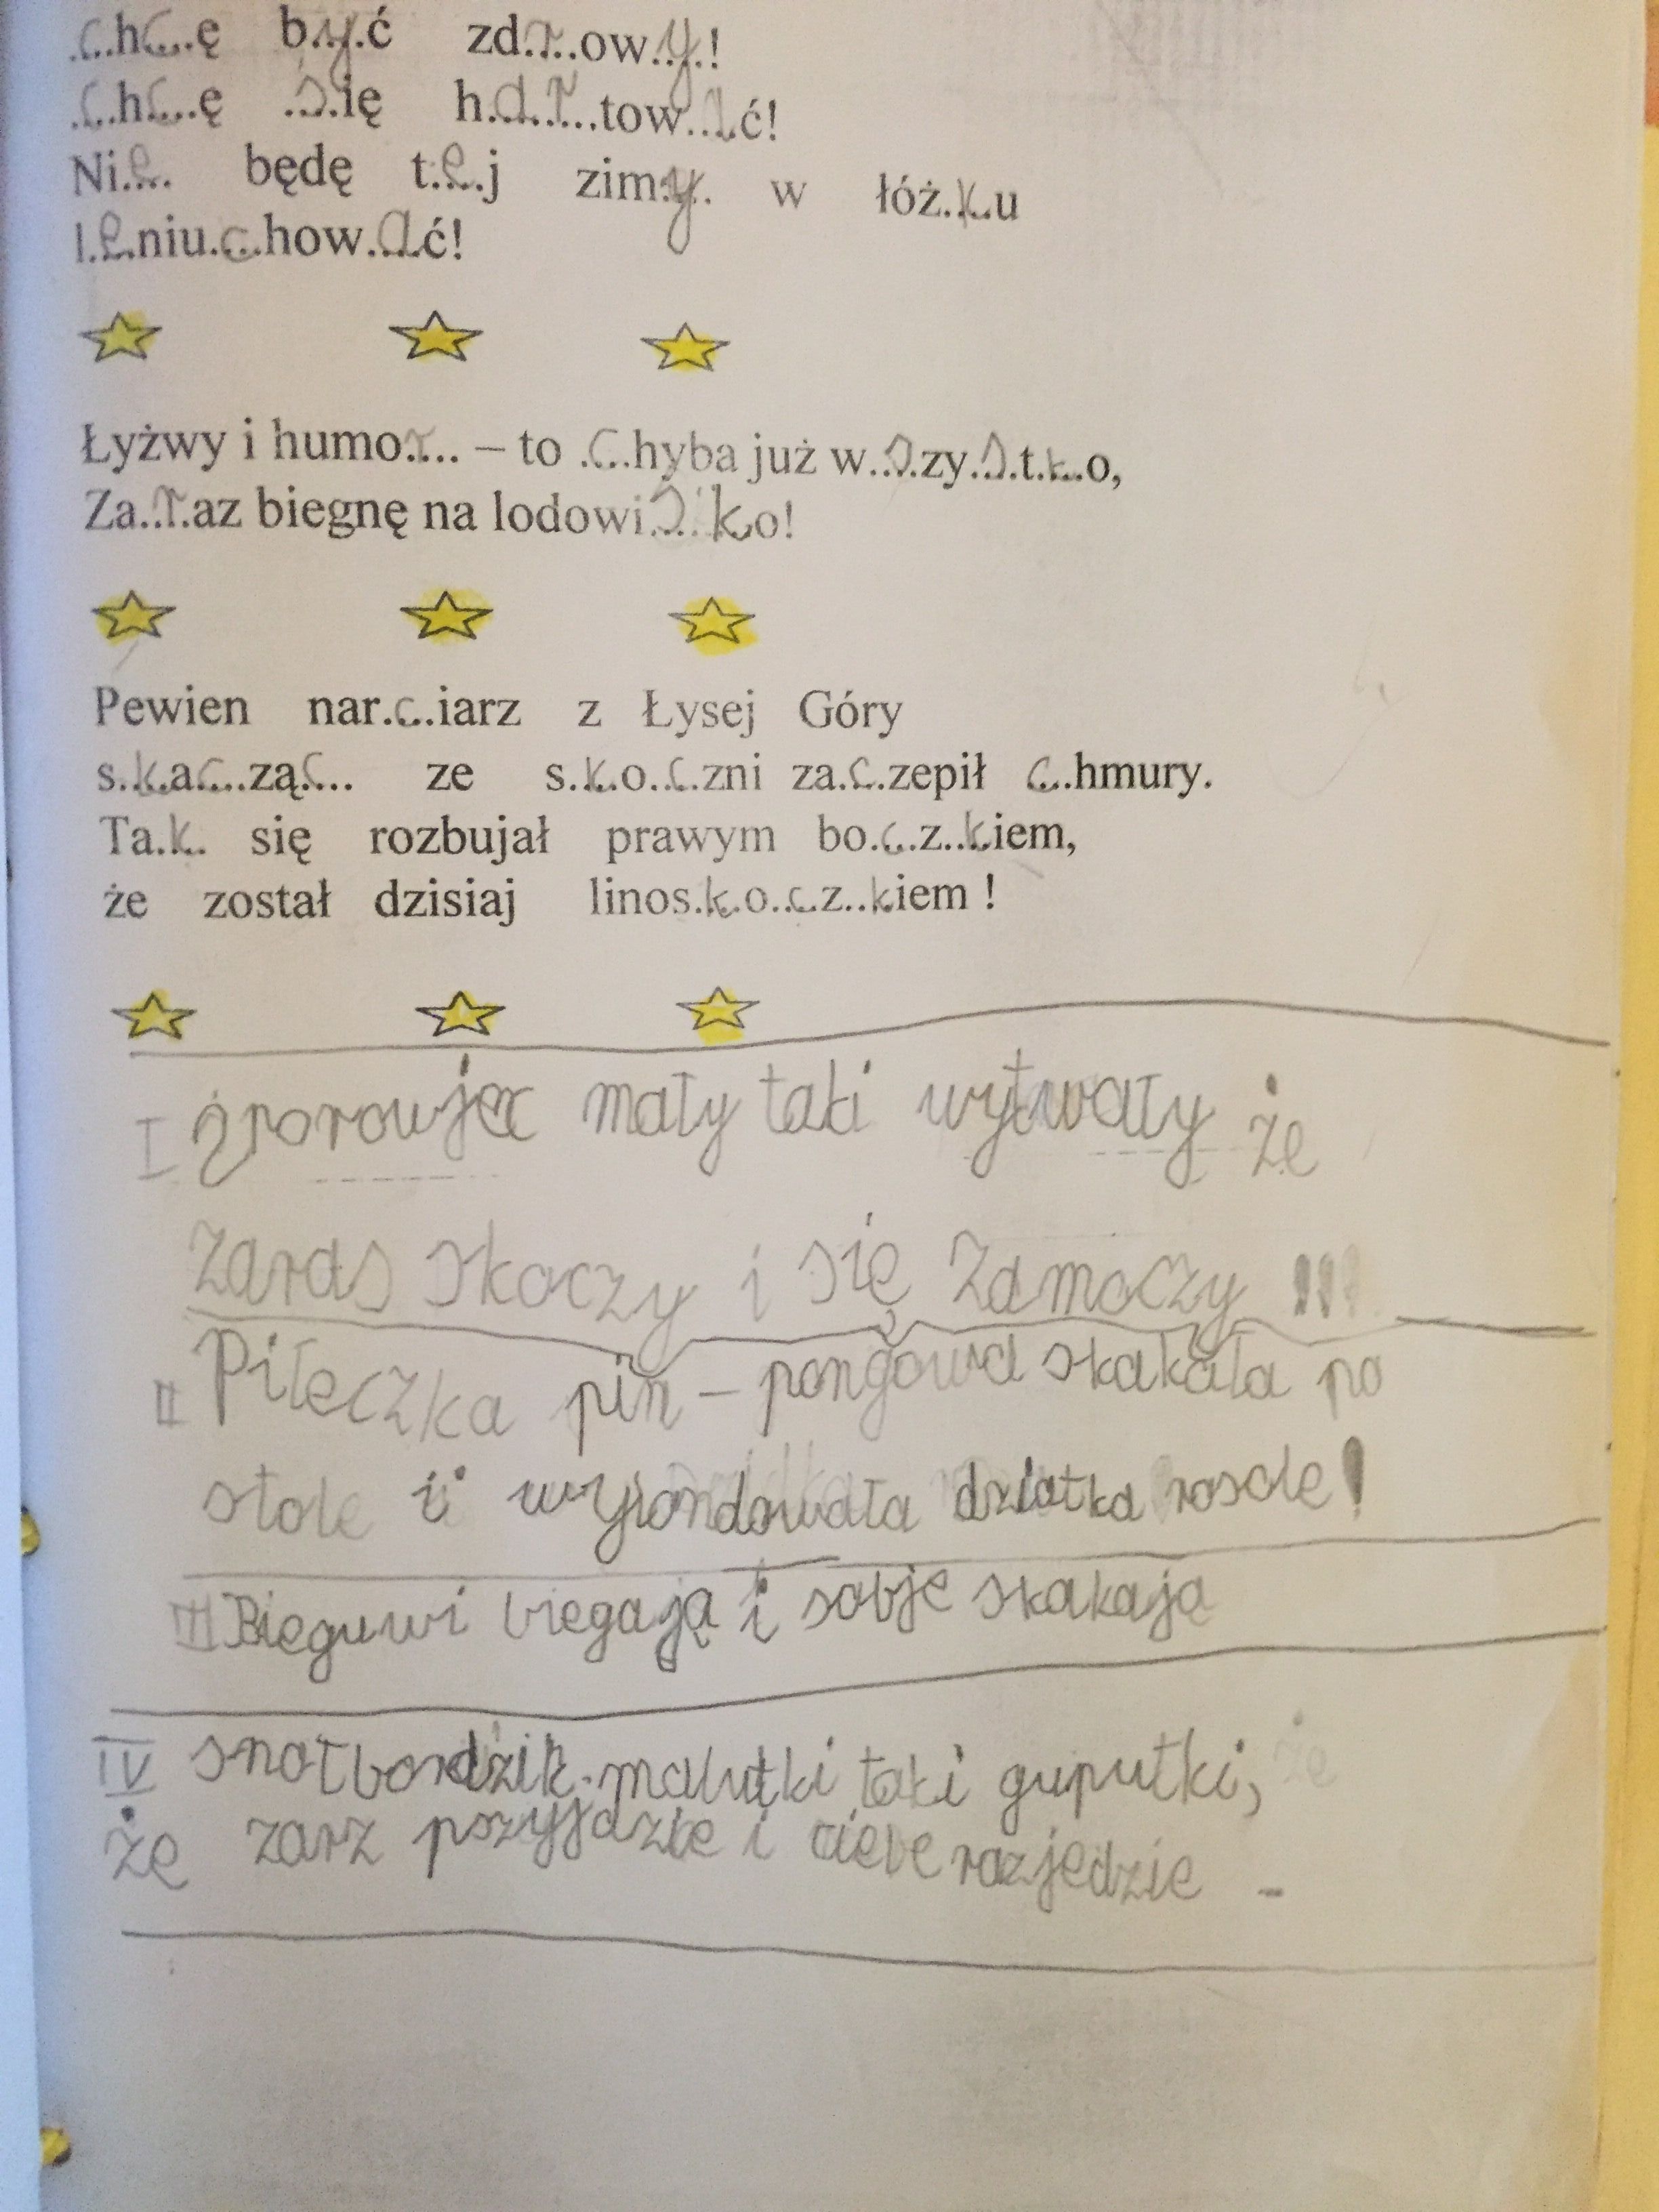 Chcę być zdrowy!
Chcę się hartować!
Nie będę tej zimy w łóżku
leniuchować!
Łyżwy i humor – to chyba już wszystko,
Zaraz biegnę na lodowisko!
Pewien narciarz z Łysej Góry
skacząc ze skoczni zaczepił chmury.
Tak się rozbujał prawym boczkiem,
że został dzisiaj linoskoczkiem !
I mały taki wytwały że
zaras skoczy i się zamoczy !!!
II Piłeczka pin – pongowa skakała po
stole i wyiondowała dziatka rosole!
III Bieguwi biegają i sobje skakają
IV snołbordzik malutki taki guputki, że
że zarz pszyjdzie i ciebe razjedzie -